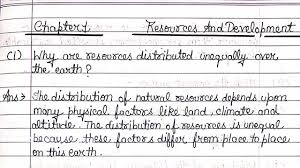 Chapter 1 Resources And Development
Q1) Why are resources distributed unequally over
the earth?
Ans → The distribution of natural resources depends upon
many physical factors like land, climate and
altitude. The distribution of resources is unequal
because these factors differ from place to place
on this earth.